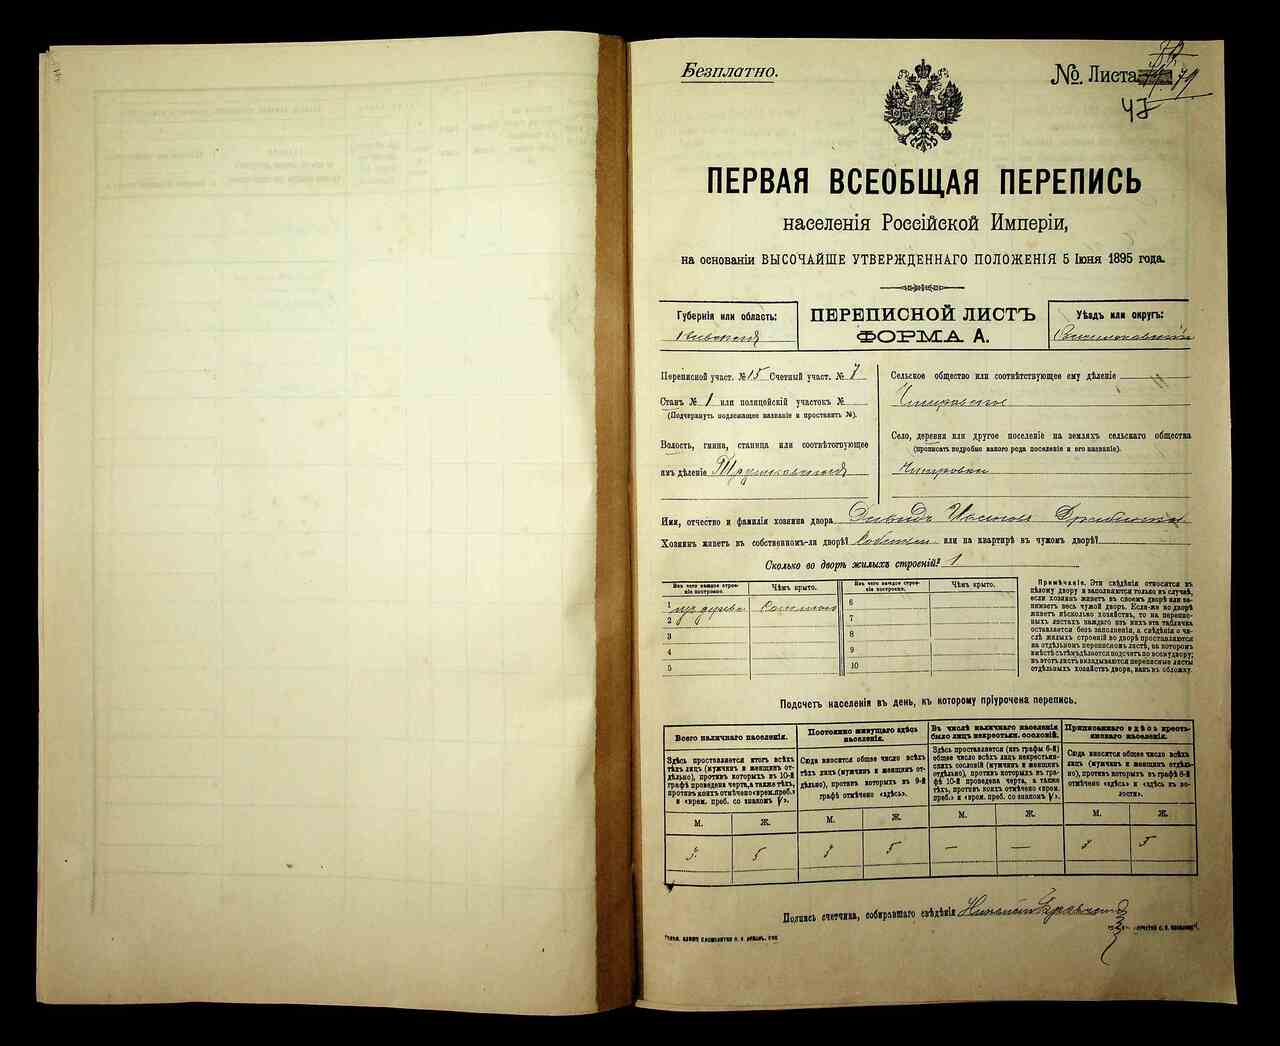 Безплатно.
№ Листа 79
47
ПЕРВАЯ ВСЕОБЩАЯ ПЕРЕПИСЬ
населенія Россійской Имперіи,
на основаніи ВЫСОЧАЙШЕ УТВЕРЖДЕННАГО ПОЛОЖЕНІЯ 5 Іюня 1895 года.
Губернія или область:
Кіевская
ПЕРЕПИСНОЙ ЛИСТЪ
ФОРМА А.
Уѣздъ или округъ:
Переписной участ. № 15 Счетный участ. № 7
Станъ № 1 или полицейскій участокъ №
(Подчеркнуть подлежащее названіе и проставить №).
Волость, гмина, станица или соотвѣтствующее
имъ дѣленіе
Сельское общество или соотвѣтствующее ему дѣленіе
Село, деревня или другое поселеніе на земляхъ сельскаго общества
(прописать подробно какого рода поселеніе и его названіе).
Имя, отчество и фамилія хозяина двора Давидъ
Хозяинъ живетъ въ собственномъ-ли дворѣ? или на квартирѣ въ чужомъ дворѣ?
Сколько во дворѣ жилыхъ строеній? 1
Изъ чего каждое строеніе построено.
Чѣмъ крыто.
Изъ чего каждое строеніе построено.
Чѣмъ крыто.
1 изъ дерева соломою
2
3
4
5
6
7
8
9
10
Примѣчаніе. Эти свѣдѣнія относятся къ
цѣлому двору и заполняются только въ случаѣ,
если хозяинъ живетъ въ своемъ дворѣ или занимаетъ
весь чужой дворъ. Если-же во дворѣ
живетъ нѣсколько хозяйствъ, то на переписныхъ
листахъ каждаго изъ нихъ эта табличка
оставляется безъ заполненія, а свѣдѣнія о числѣ
жилыхъ строеній во дворѣ проставляются
на отдѣльномъ переписномъ листѣ, на которомъ
вмѣстѣ съ тѣмъ дѣлается подсчетъ по всему двору;
въ этотъ листъ вкладываются переписные листы
отдѣльныхъ хозяйствъ двора, какъ въ обложку.
Подсчетъ населенія въ день, къ которому пріурочена перепись.
Всего наличнаго населенія.
Здѣсь проставляется итогъ всѣхъ
тѣхъ лицъ (мужчинъ и женщинъ отдѣльно),
противъ которыхъ въ 10-й
графѣ проведена черта, а также тѣхъ,
противъ коихъ отмѣчено «врем. преб.»
и «врем. преб. со знакомъ V».
Постоянно живущаго здѣсь населенія.
Сюда вносится общее число всѣхъ
тѣхъ лицъ (мужчинъ и женщинъ отдѣльно),
противъ которыхъ въ 9-й
графѣ отмѣчено «здѣсь».
Въ числѣ наличнаго населенія
было лицъ некрестьян. сословій.
Здѣсь проставляется (изъ графы 6-й)
общее число всѣхъ лицъ некрестьянскихъ
сословій (мужчинъ и женщинъ
отдѣльно), противъ которыхъ въ графѣ
10-й проведена черта, а также
тѣхъ, противъ коихъ отмѣчено «врем.
преб.» и «врем. преб. со знакомъ V».
Приписаннаго здѣсь крестьянскаго населенія.
Сюда вносится общее число всѣхъ
лицъ (мужчинъ и женщинъ отдѣльно),
противъ которыхъ въ графѣ 8-й
отмѣчено «здѣсь» и «здѣсь въ волости».
М. Ж. М. Ж. М. Ж. М. Ж.
7 5 7 5 — — 7 5
Подпись счетчика, собиравшаго свѣдѣнія